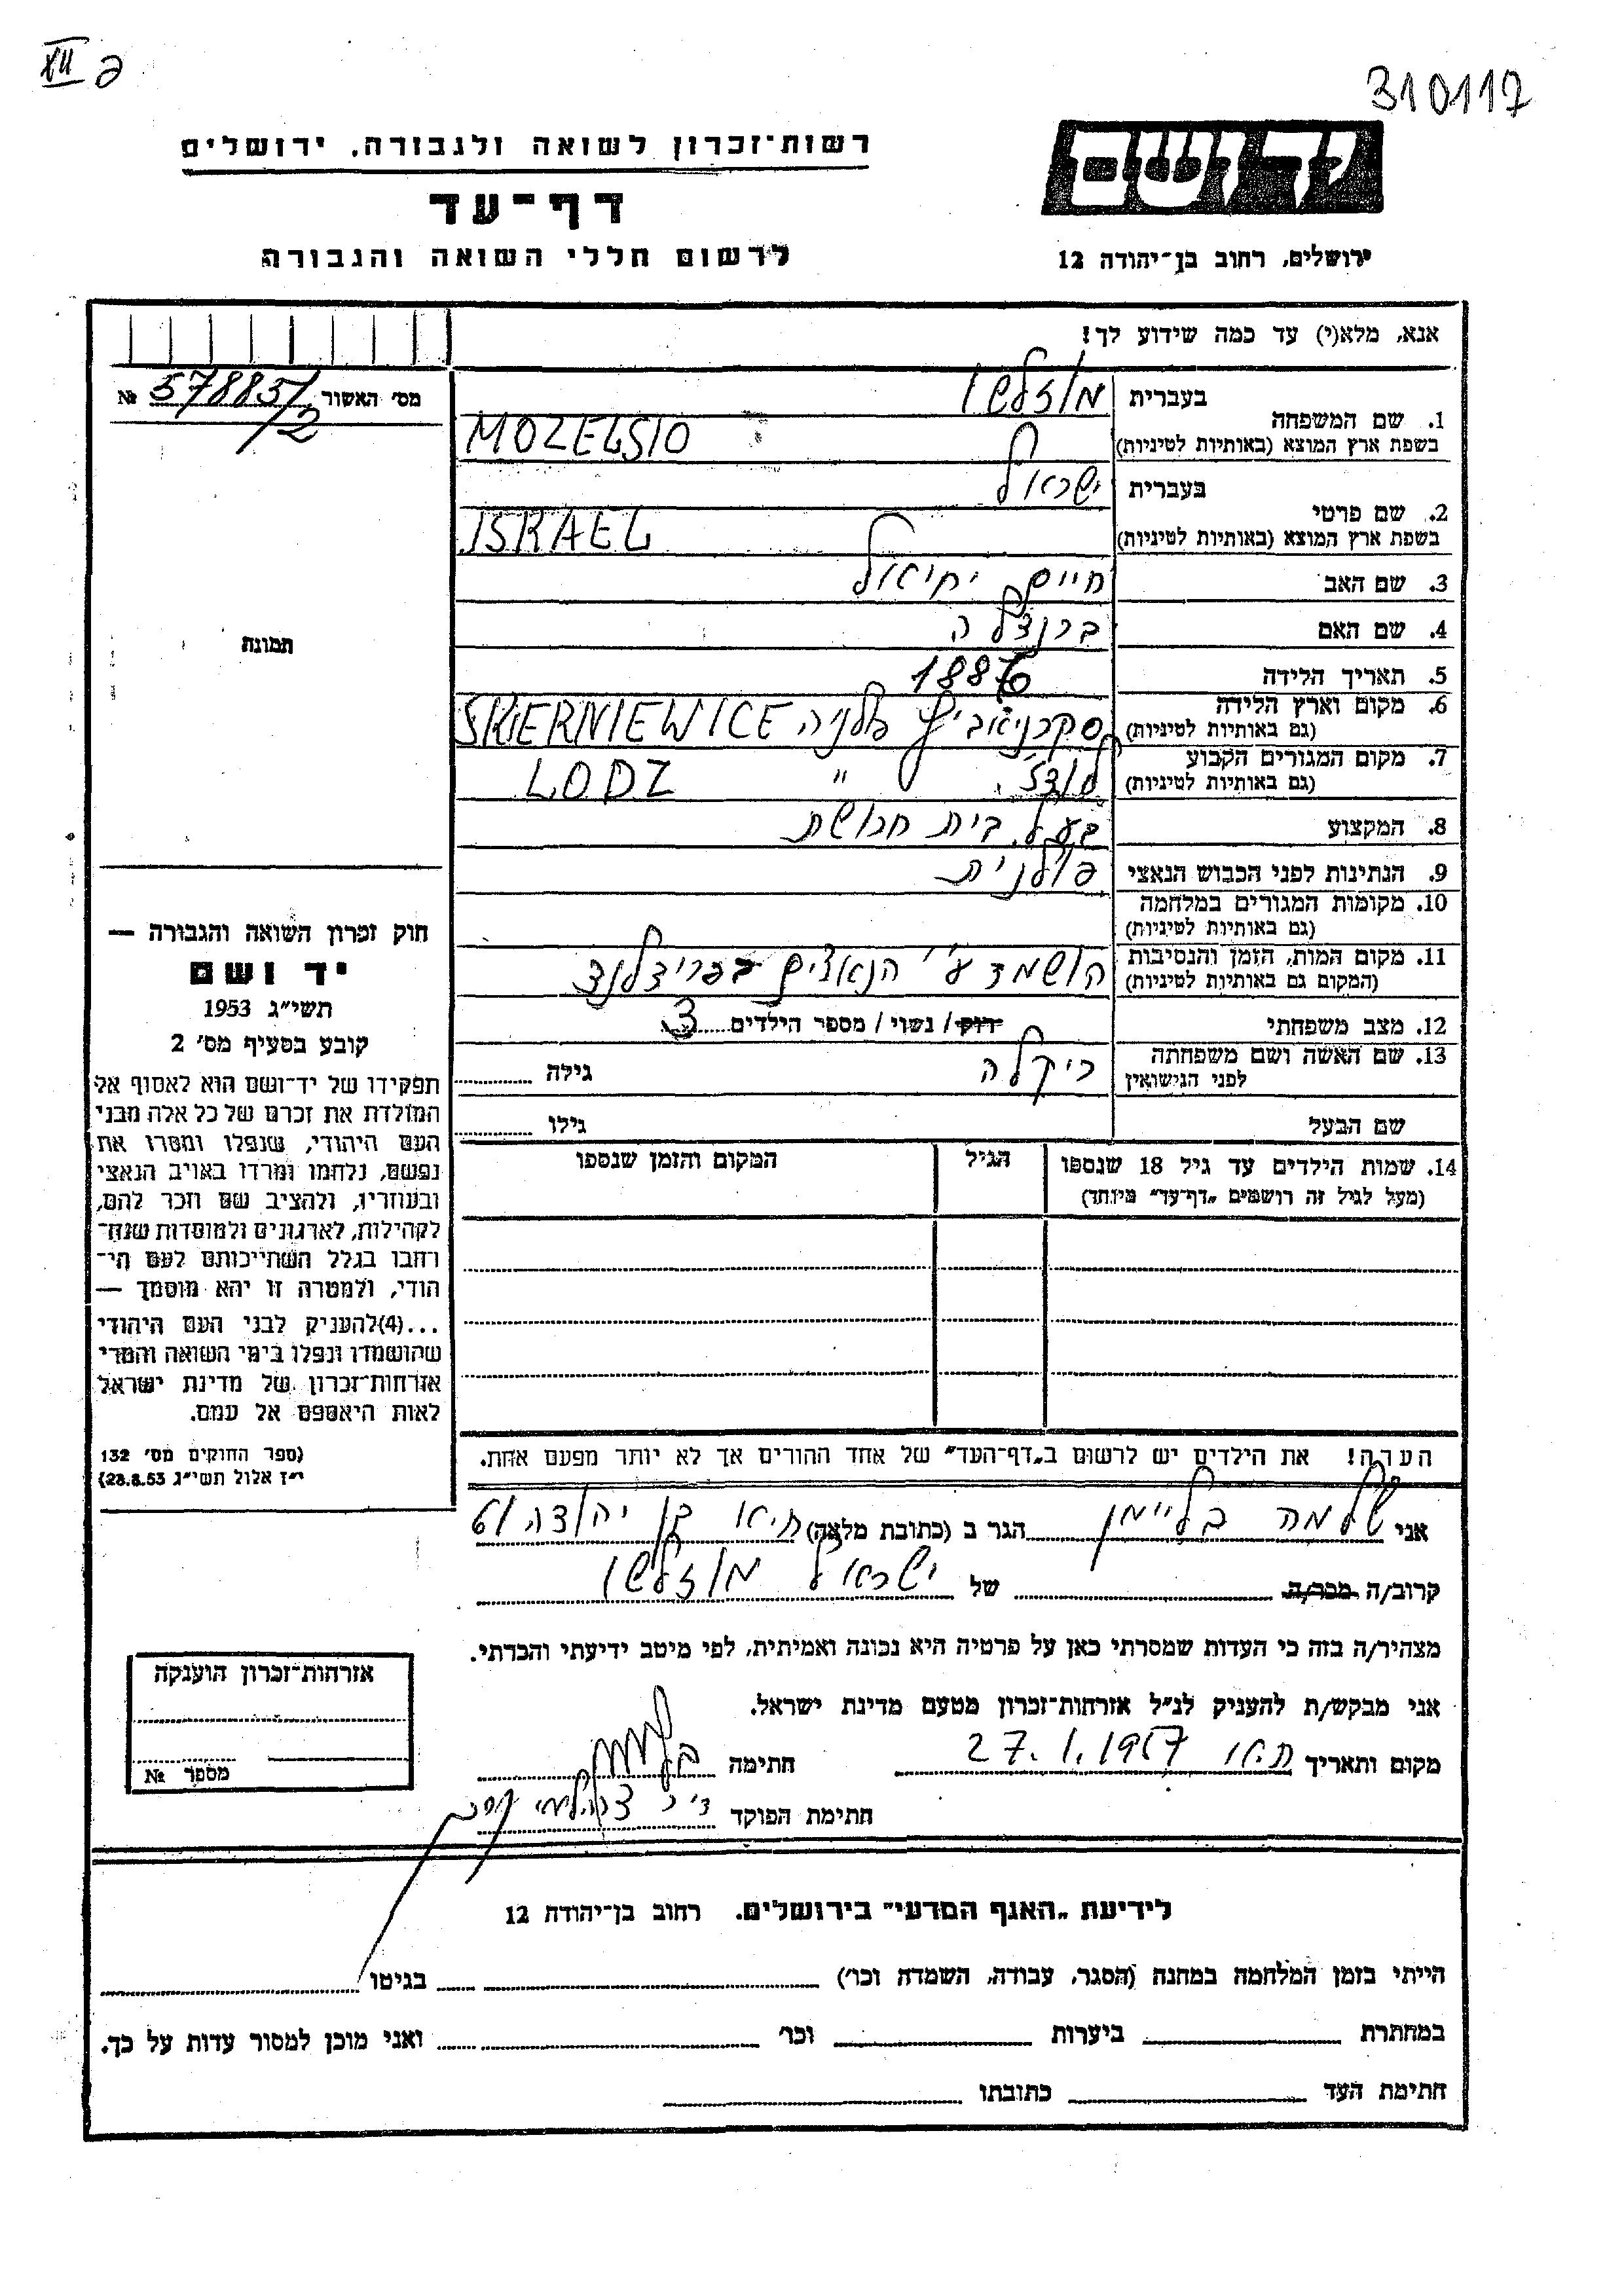 XII
310117
יד ושם
רשות־זכרון לשואה ולגבורה, ירושלים
דף־עד
לרשום חללי השואה והגבורה
ירושלים, רחוב בן־יהודה 12
אנא, מלא(י) עד כמה שידוע לך!
מס׳ האשור № 57885/2
1. שם המשפחה בעברית מוזלשיו
בשפת ארץ המוצא (באותיות לטיניות) MOZELSIO
2. שם פרטי בעברית ישראל
בשפת ארץ המוצא (באותיות לטיניות) ISRAEL
3. שם האב חיים יחיאל
4. שם האם ברנצלה
5. תאריך הלידה 1886
6. מקום וארץ הלידה (גם באותיות לטיניות) סקרניאביץ פולניה SKIERNIEWICE
7. מקום המגורים הקבוע (גם באותיות לטיניות) לודז׳ " LODZ
8. המקצוע בעל בית חרושת
9. הנתינות לפני הכבוש הנאצי פולנית
10. מקומות המגורים במלחמה (גם באותיות לטיניות)
11. מקום המות, הזמן והנסיבות (המקום גם באותיות לטיניות) הושמד ע״י הנאצים בפרידלנד
12. מצב משפחתי רווק / נשוי / מספר הילדים 3
13. שם האשה ושם משפחתה לפני הנישואין ריקלה גילה
שם הבעל גילו
14. שמות הילדים עד גיל 18 שנספו (מעל לגיל זה רושמים „דף־עד” מיוחד) הגיל המקום והזמן שנספו
תמונה
חוק זכרון השואה והגבורה —
יד ושם
תשי״ג 1953
קובע בסעיף מס׳ 2
תפקידו של יד־ושם הוא לאסוף אל
המולדת את זכרם של כל אלה מבני
העם היהודי, שנפלו ומסרו את
נפשם, נלחמו ומרדו באויב הנאצי
ובעוזריו, ולהציב שם וזכר להם,
לקהילות, לארגונים ולמוסדות שנח־
רחבו בגלל השתייכותם לעם הי־
הודי, ולמטרה זו יהא מוסמך —
...(4)להעניק לבני העם היהודי
שהושמדו ונפלו בימי השואה והמרי
אזרחות־זכרון של מדינת ישראל
לאות היאספם אל עמם.
(ספר החוקים מס׳ 132
י״ז אלול תשי״ג 28.8.53)
הערה! את הילדים יש לרשום ב„דף־העד” של אחד ההורים אך לא יותר מפעם אחת.
אני שלמה בליימן הגר ב (כתובת מלאה) ת״א בן יהודה
קרוב/ה מכר/ה של ישראל מוזלשיו
מצהיר/ה בזה כי העדות שמסרתי כאן על פרטיה היא נכונה ואמיתית, לפי מיטב ידיעתי והכרתי.
אני מבקש/ת להעניק לנ״ל אזרחות־זכרון מטעם מדינת ישראל.
מקום ותאריך ת״א 27.1.1957 חתימה
חתימת הפוקד
אזרחות־זכרון הוענקה
מספר №
לידיעת „האגף המדעי” בירושלים. רחוב בן־יהודה 12
הייתי בזמן המלחמה במחנה (הסגר, עבודה, השמדה וכו׳) בגיטו
במחתרת ביערות וכו׳ ואני מוכן למסור עדות על כך.
חתימת העד כתובתו